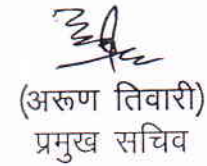 (अरूण तिवारी)
प्रमुख सचिव